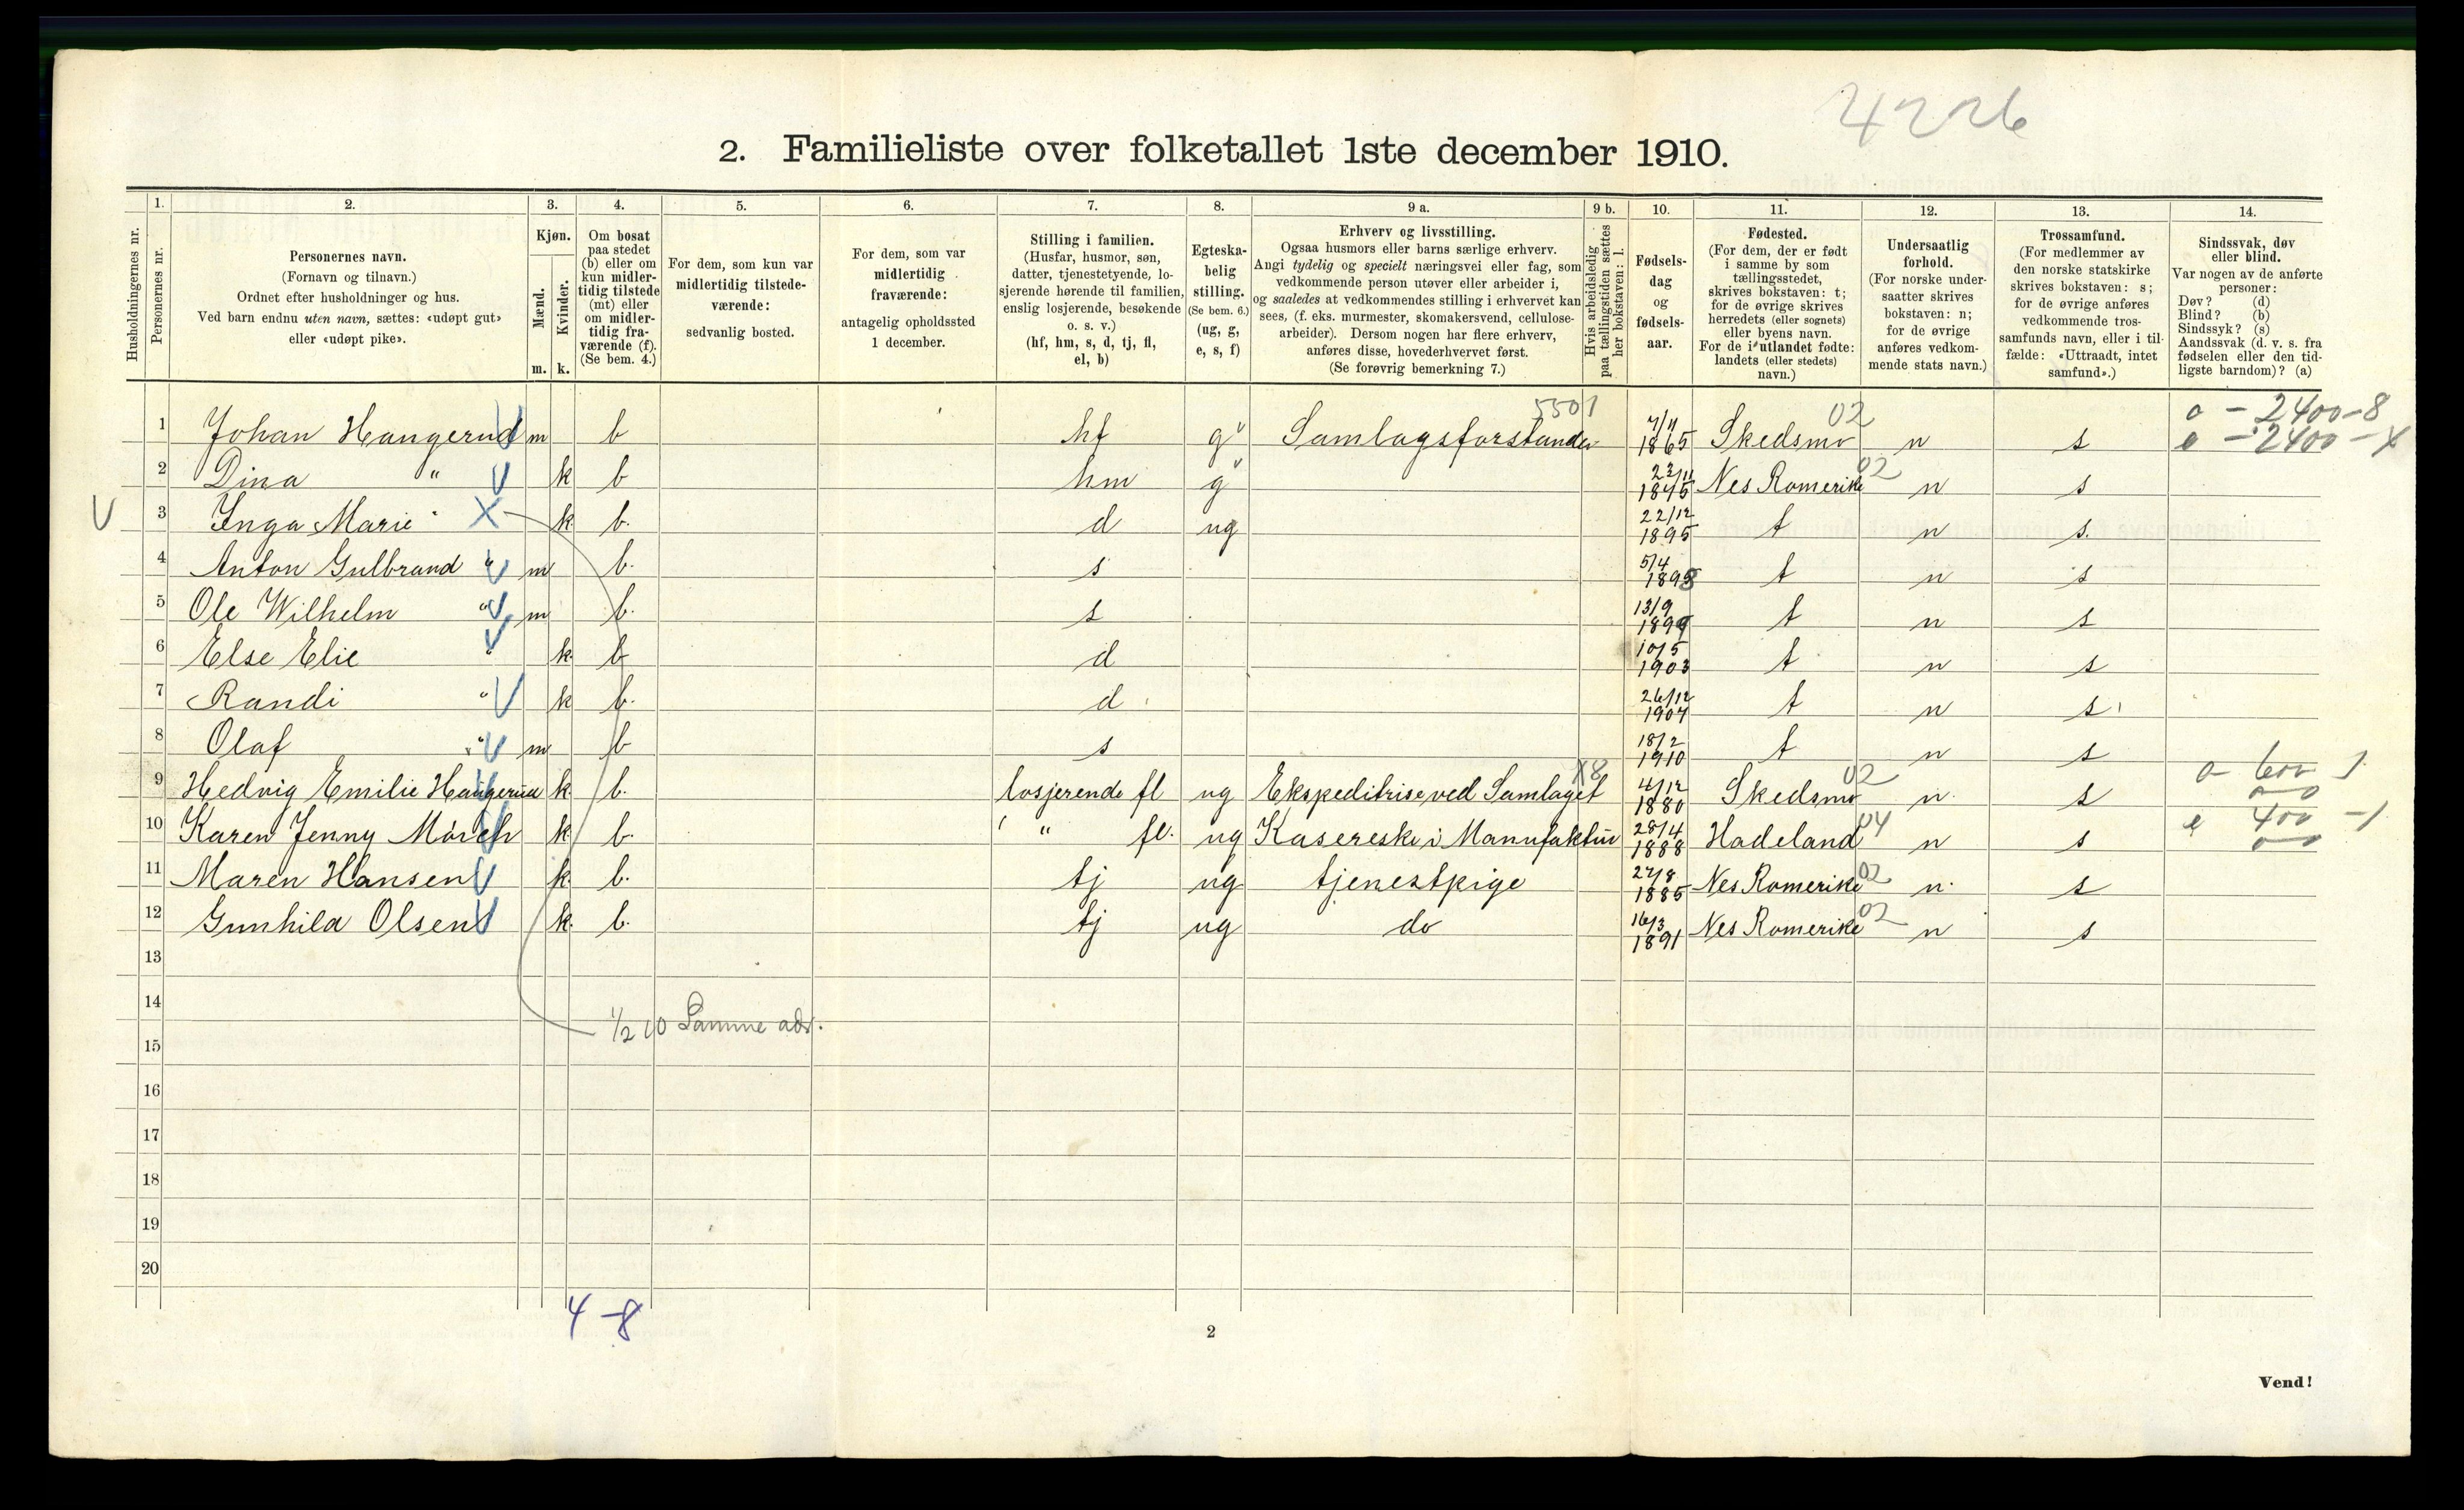 4226
2. Familieliste over folketallet 1ste december 1910.
1. 2. 3. 4. 5. 6. 7. 8. 9 a. 9 b. 10. 11. 12. 13. 14.
Husholdningernes nr.
Personernes nr.
Personernes navn.
(Fornavn og tilnavn.)
Ordnet efter husholdninger og hus.
Ved barn endnu uten navn, sættes: «udøpt gut»
eller «udøpt pike».
Kjøn.
Mænd.
Kvinder.
m. k.
Om bosat
paa stedet
(b) eller om
kun midler-
tidig tilstede
(mt) eller
om midler-
tidig fra-
værende (f).
(Se bem. 4.)
For dem, som kun var
midlertidig tilstede-
værende:
sedvanlig bosted.
For dem, som var
midlertidig
fraværende:
antagelig opholdssted
1 december.
Stilling i familien.
(Husfar, husmor, søn,
datter, tjenestetyende, lo-
sjerende hørende til familien,
enslig losjerende, besøkende
o. s. v.)
(hf, hm, s, d, tj, fl,
el, b)
Egteska-
belig
stilling.
(Se bem. 6.)
(ug, g,
e, s, f)
Erhverv og livsstilling.
Ogsaa husmors eller barns særlige erhverv.
Angi tydelig og specielt næringsvei eller fag, som
vedkommende person utøver eller arbeider i,
og saaledes at vedkommendes stilling i erhvervet kan
sees, (f. eks. murmester, skomakersvend, cellulose-
arbeider). Dersom nogen har flere erhverv,
anføres disse, hovederhvervet først.
(Se forøvrig bemerkning 7.)
Hvis arbeidsledig
paa tællingstiden sættes
her bokstaven: l.
Fødsels-
dag
og
fødsels-
aar.
Fødested.
(For dem, der er født
i samme by som
tællingsstedet,
skrives bokstaven: t;
for de øvrige skrives
herredets (eller sognets)
eller byens navn.
For de i utlandet fødte:
landets (eller stedets)
navn.)
Undersaatlig
forhold.
(For norske under-
saatter skrives
bokstaven: n;
for de øvrige
anføres vedkom-
mende stats navn.)
Trossamfund.
(For medlemmer av
den norske statskirke
skrives bokstaven: s;
for de øvrige anføres
vedkommende tros-
samfunds navn, eller i til-
fælde: «Uttraadt, intet
samfund».)
Sindssvak, døv
eller blind.
Var nogen av de anførte
personer:
Døv? (d)
Blind? (b)
Sindssyk? (s)
Aandssvak (d. v. s. fra
fødselen eller den tid-
ligste barndom)? (a)
5501 02 o - 2400 - 8
1 Johan Haugerud m b hf g Samlagsforstander 7/11 1865 Skedsmo n s e - 2400 - X
2 Dina " k b hm g 23/11 1845 Nes Romerike 02 n s
V 3 Inga Marie " X k b. d ug 22/12 1895 t n s.
4 Anton Gulbrand " m b. s 5/4 1898 t n s
5 Ole Wilhelm " m b. s 13/9 1899 t n s
6 Else Elie " k. b d 10/5 1903 t n s
7 Randi " k b. d 26/12 1904 t n s
8 Olaf " m b s 18/2 1910 t n s
9 Hedvig Emilie Haugerud k. b. losjerende fl ug Ekspeditrise ved Samlaget 4/12 1880 Skedsmo 02 n. s o 600 1
10 Karen Jenny Mörch k. b. " fl. ug Kasereske i Manufaktur 28/4 1888 Hadeland 04 n s e 400 - 1
11 Maren Hansen k. b. tj ug tjenestpige 27/8 1885 Nes Romerike 02 n. s
12 Gunhild Olsen k. b. tj ug do 16/3 1891 Nes Romerike 02 n s
13
14
1/2 10 Samme adr.
15
16
17
18
19
20
4 - 8
2
Vend!